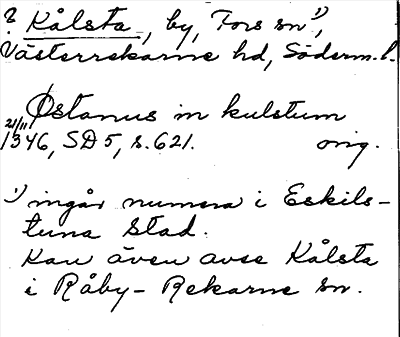 ? Kålsta, by, Fors sn 1),
Västerrekarne hd, Söderm. l.
Østanus in kulstum
21/11 1346, SD 5, s. 621. orig.
1) ingår numera i Eskils-
tuna stad.
Kan även avse Kålsta
i Råby-Rekarne sn.